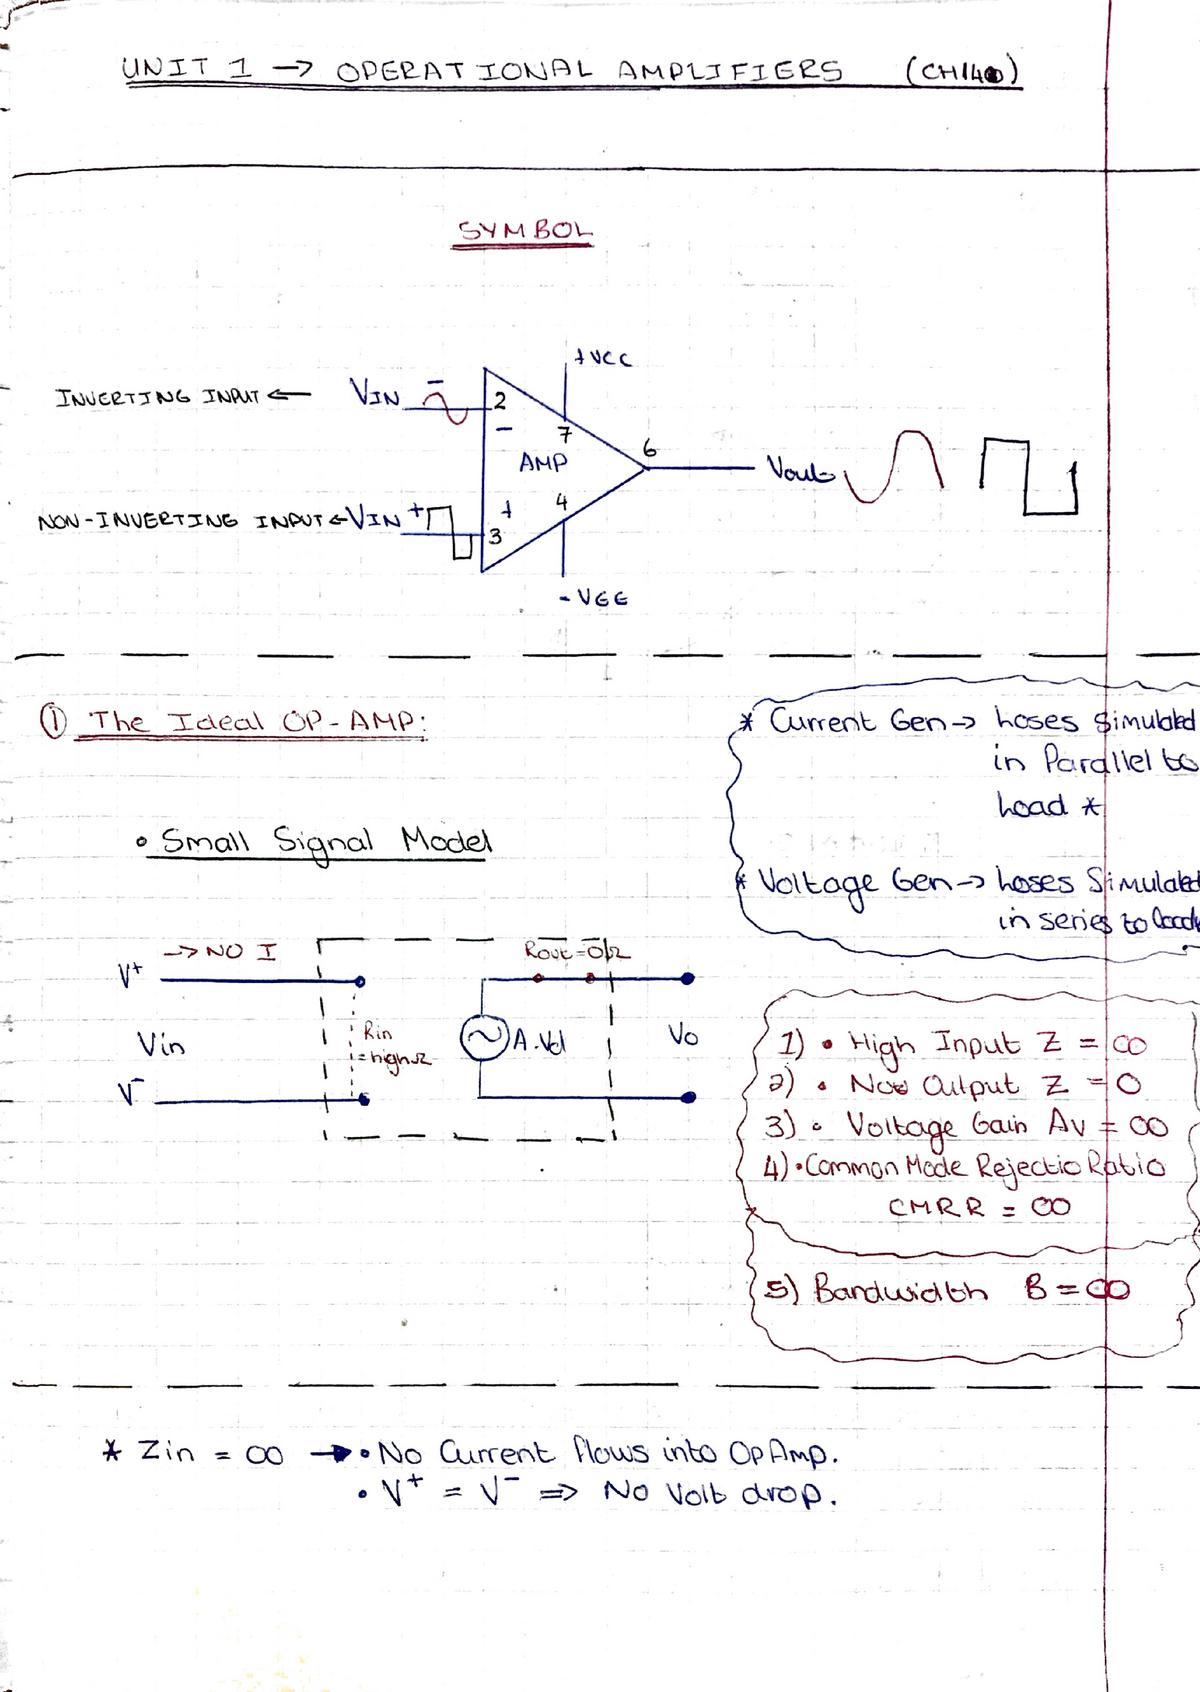 UNIT 1 → OPERATIONAL AMPLIFIERS (CH14)
SYMBOL
+VCC
INVERTING INPUT ← VIN −
2
−
7
AMP
6
Vout
4
NON-INVERTING INPUT ← VIN +
+
3
- VEE
① The Ideal OP-AMP:
* Current Gen → Loses Simulated
in Parallel to
Load *
• Small Signal Model
* Voltage Gen → Loses Simulated
in series to load
→ NO I
Rout = 0Ω
V+
Rin
= high Ω
Vin
A.Vd
Vo
V-
1) • High Input Z = ∞
2) • Output Z = 0
3) • Voltage Gain Av = ∞
4) • Common Mode Rejectio Ratio
CMRR = ∞
5) Bandwidth B = ∞
* Zin = ∞ → • No Current flows into OpAmp.
• V+ = V- ⇒ No Volt drop.